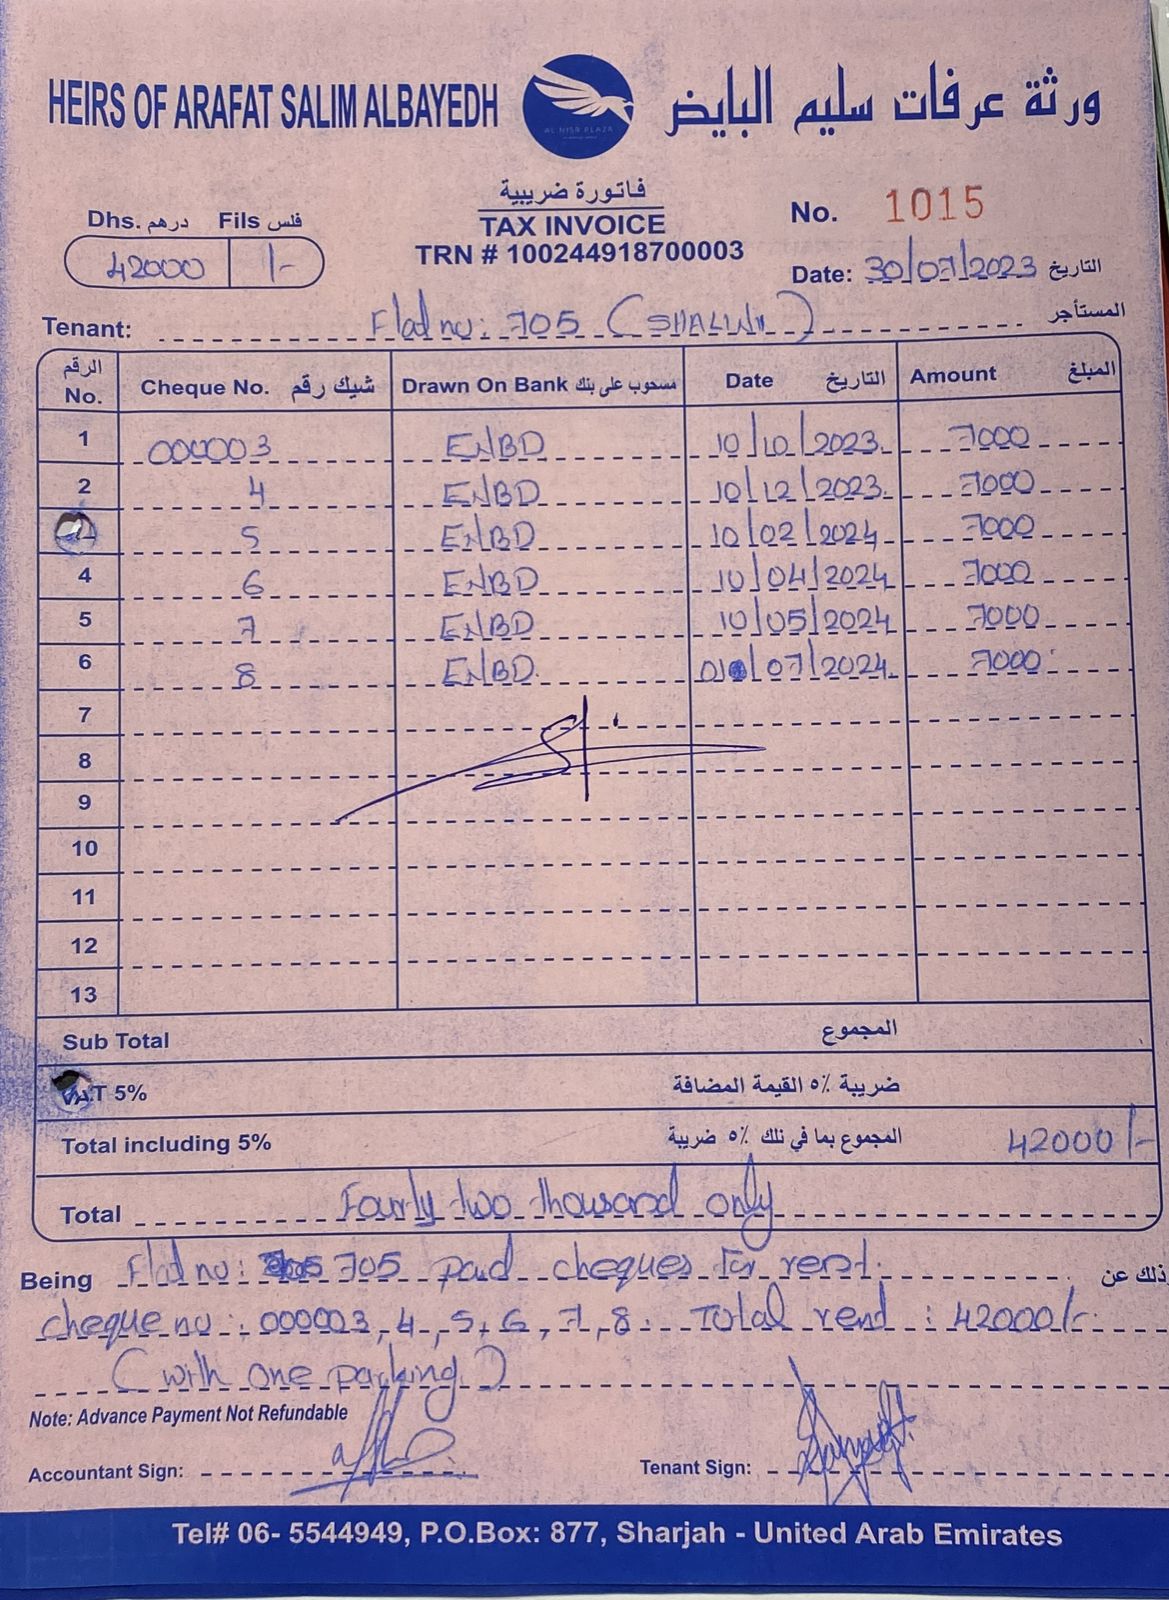 HEIRS OF ARAFAT SALIM ALBAYEDH
AL NISR PLAZA
ورثة عرفات سليم البايض
فاتورة ضريبية
TAX INVOICE
TRN # 100244918700003
Dhs. درهم Fils فلس
42000 /-
No. 1015
Date: 30/07/2023 التاريخ
Tenant: Flat no: 705 المستأجر
الرقم No. Cheque No. شيك رقم Drawn On Bank مسحوب على بنك Date التاريخ Amount المبلغ
1 000003 ENBD 10/10/2023 7000
2 4 ENBD 10/12/2023 7000
5 ENBD 10/02/2024 7000
4 6 ENBD 10/04/2024 7000
5 7 ENBD 10/05/2024 7000
6 8 ENBD 01/07/2024 7000
7
8
9
10
11
12
13
Sub Total المجموع
VAT 5% ضريبة ٥٪ القيمة المضافة
Total including 5% المجموع بما في ذلك ٥٪ ضريبة 42000/-
Total Fourty two thousand only
Being Flat no: 705 paid cheques for rent. وذلك عن
cheque no: 000003, 4, 5, 6, 7, 8. Total rent : 42000/-
(with one parking)
Note: Advance Payment Not Refundable
Accountant Sign: Tenant Sign:
Tel# 06- 5544949, P.O.Box: 877, Sharjah - United Arab Emirates